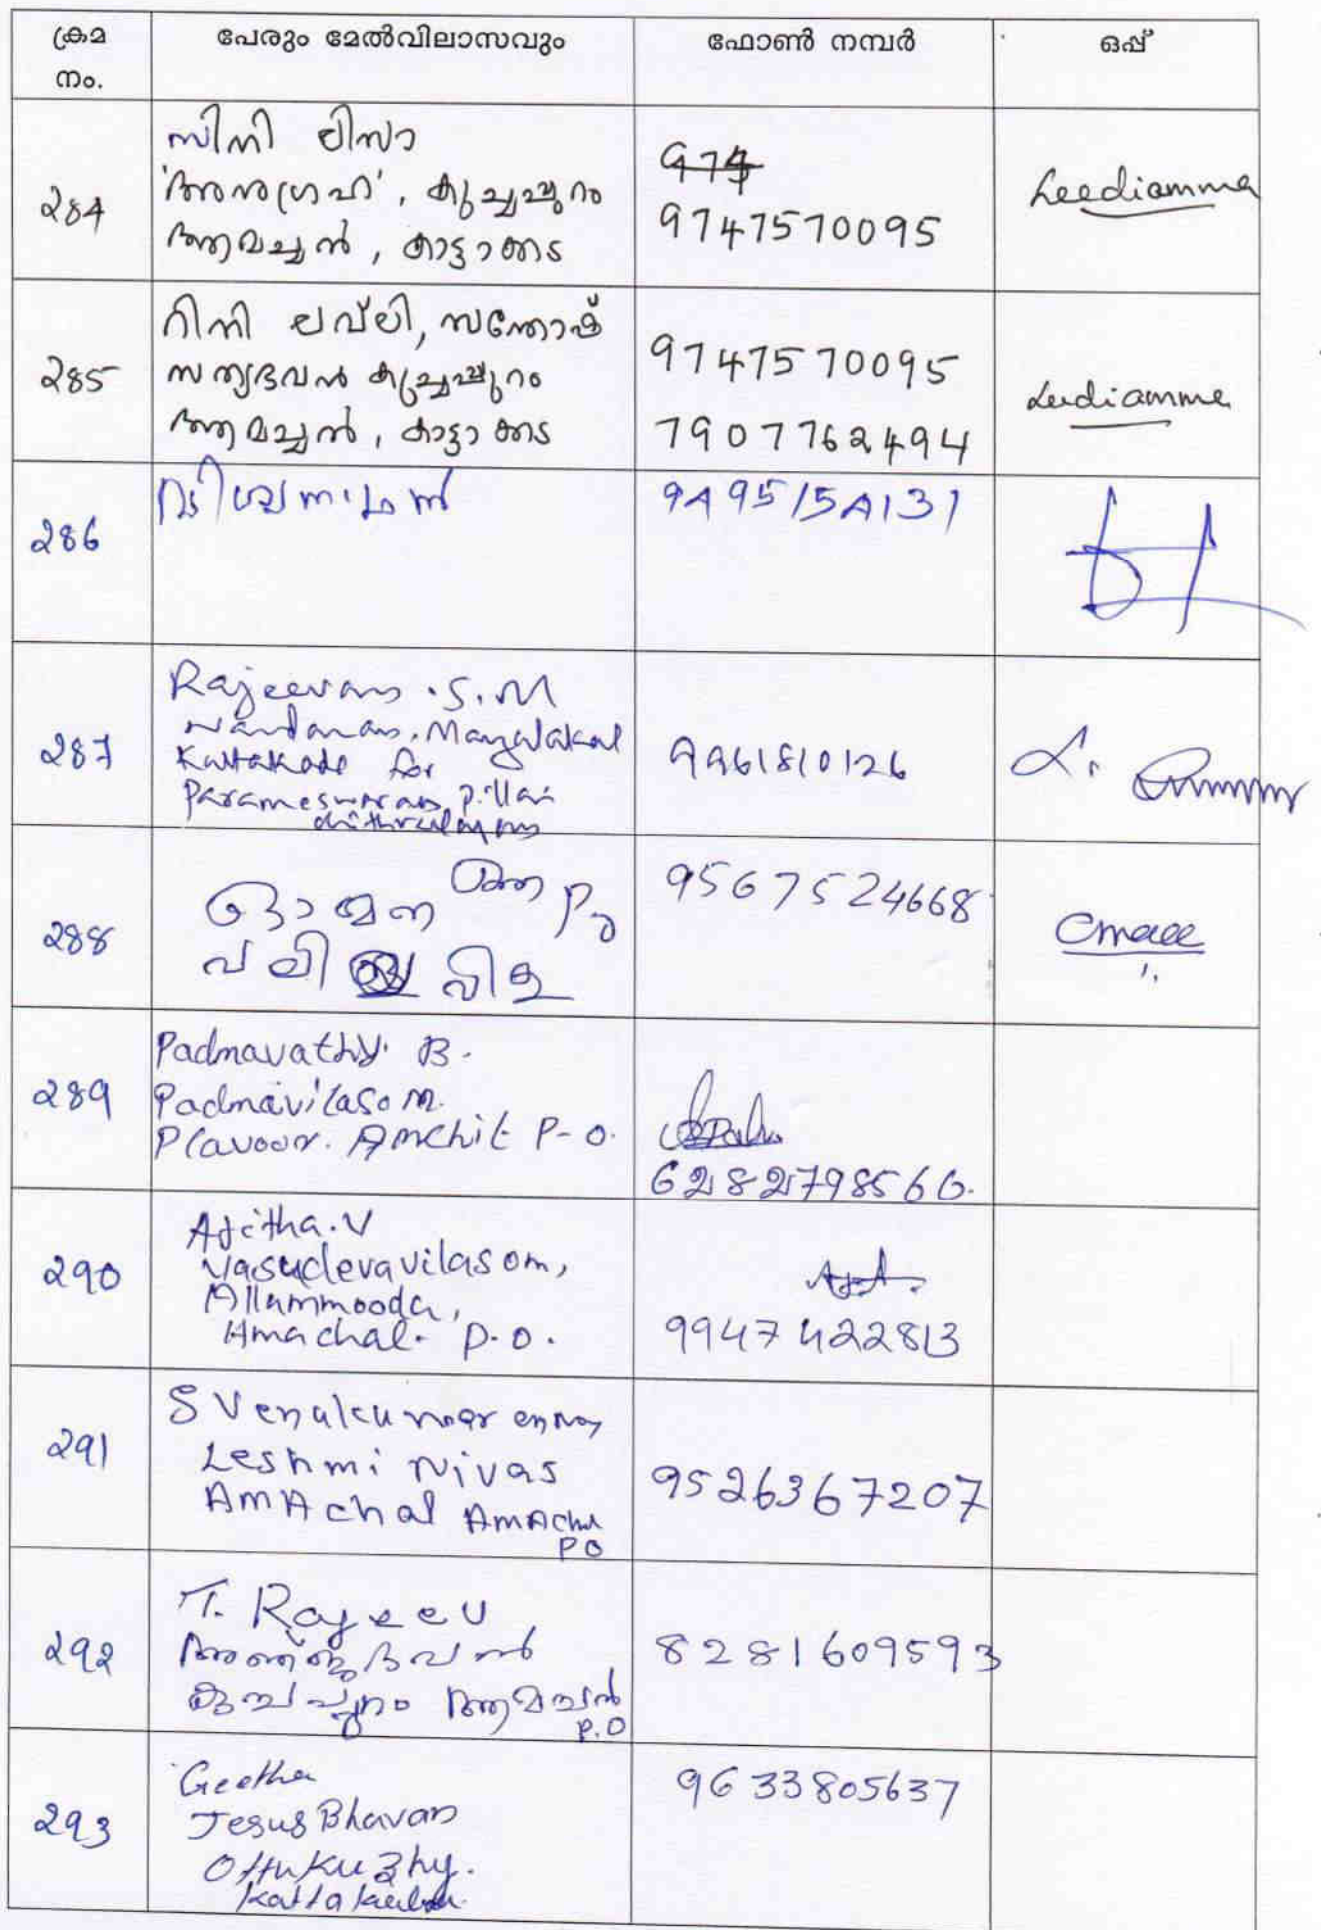 ക്രമ നം. പേരും മേൽവിലാസവും ഫോൺ നമ്പർ ഒപ്പ്
284
സിനി ലിസാ
'അനുഗ്രഹ', കുച്ചപ്പുറം
ആമച്ചൽ, കാട്ടാക്കട
974
9747570095
Leediamma
285
റിനി ലവ്‌ലി, സന്തോഷ്
സത്യഭവൻ കുച്ചപ്പുറം
ആമച്ചൽ, കാട്ടാക്കട
9747570095
7907762494
Leediamma
286
9495154131
287
Rajeevan .S.M
Nandanam, Mangalakal
Kattakada for
Parameswaran pillai
chithralayam
9961810126
288
ഓമന അമ്മ
വിള
9567524668
289
Padmavathy. B.
Padmavilasom.
Plavoor. Amchil P-O.
6282798560.
290
Ajitha. V
Vasudevavilasom,
Allammooda,
Amachal. P.O.
9947422813
291
S Venukumar
Leshmi Nivas
AmAchal AmAchal
PO
9526367207
292
T. Rajeev
ഭവൻ
കുച്ചപ്പുറം ആമച്ചൽ
P.O
8281609593
293
Geetha
Jesus Bhavan
Ottukuzhy.
Kattakada.
9633805637